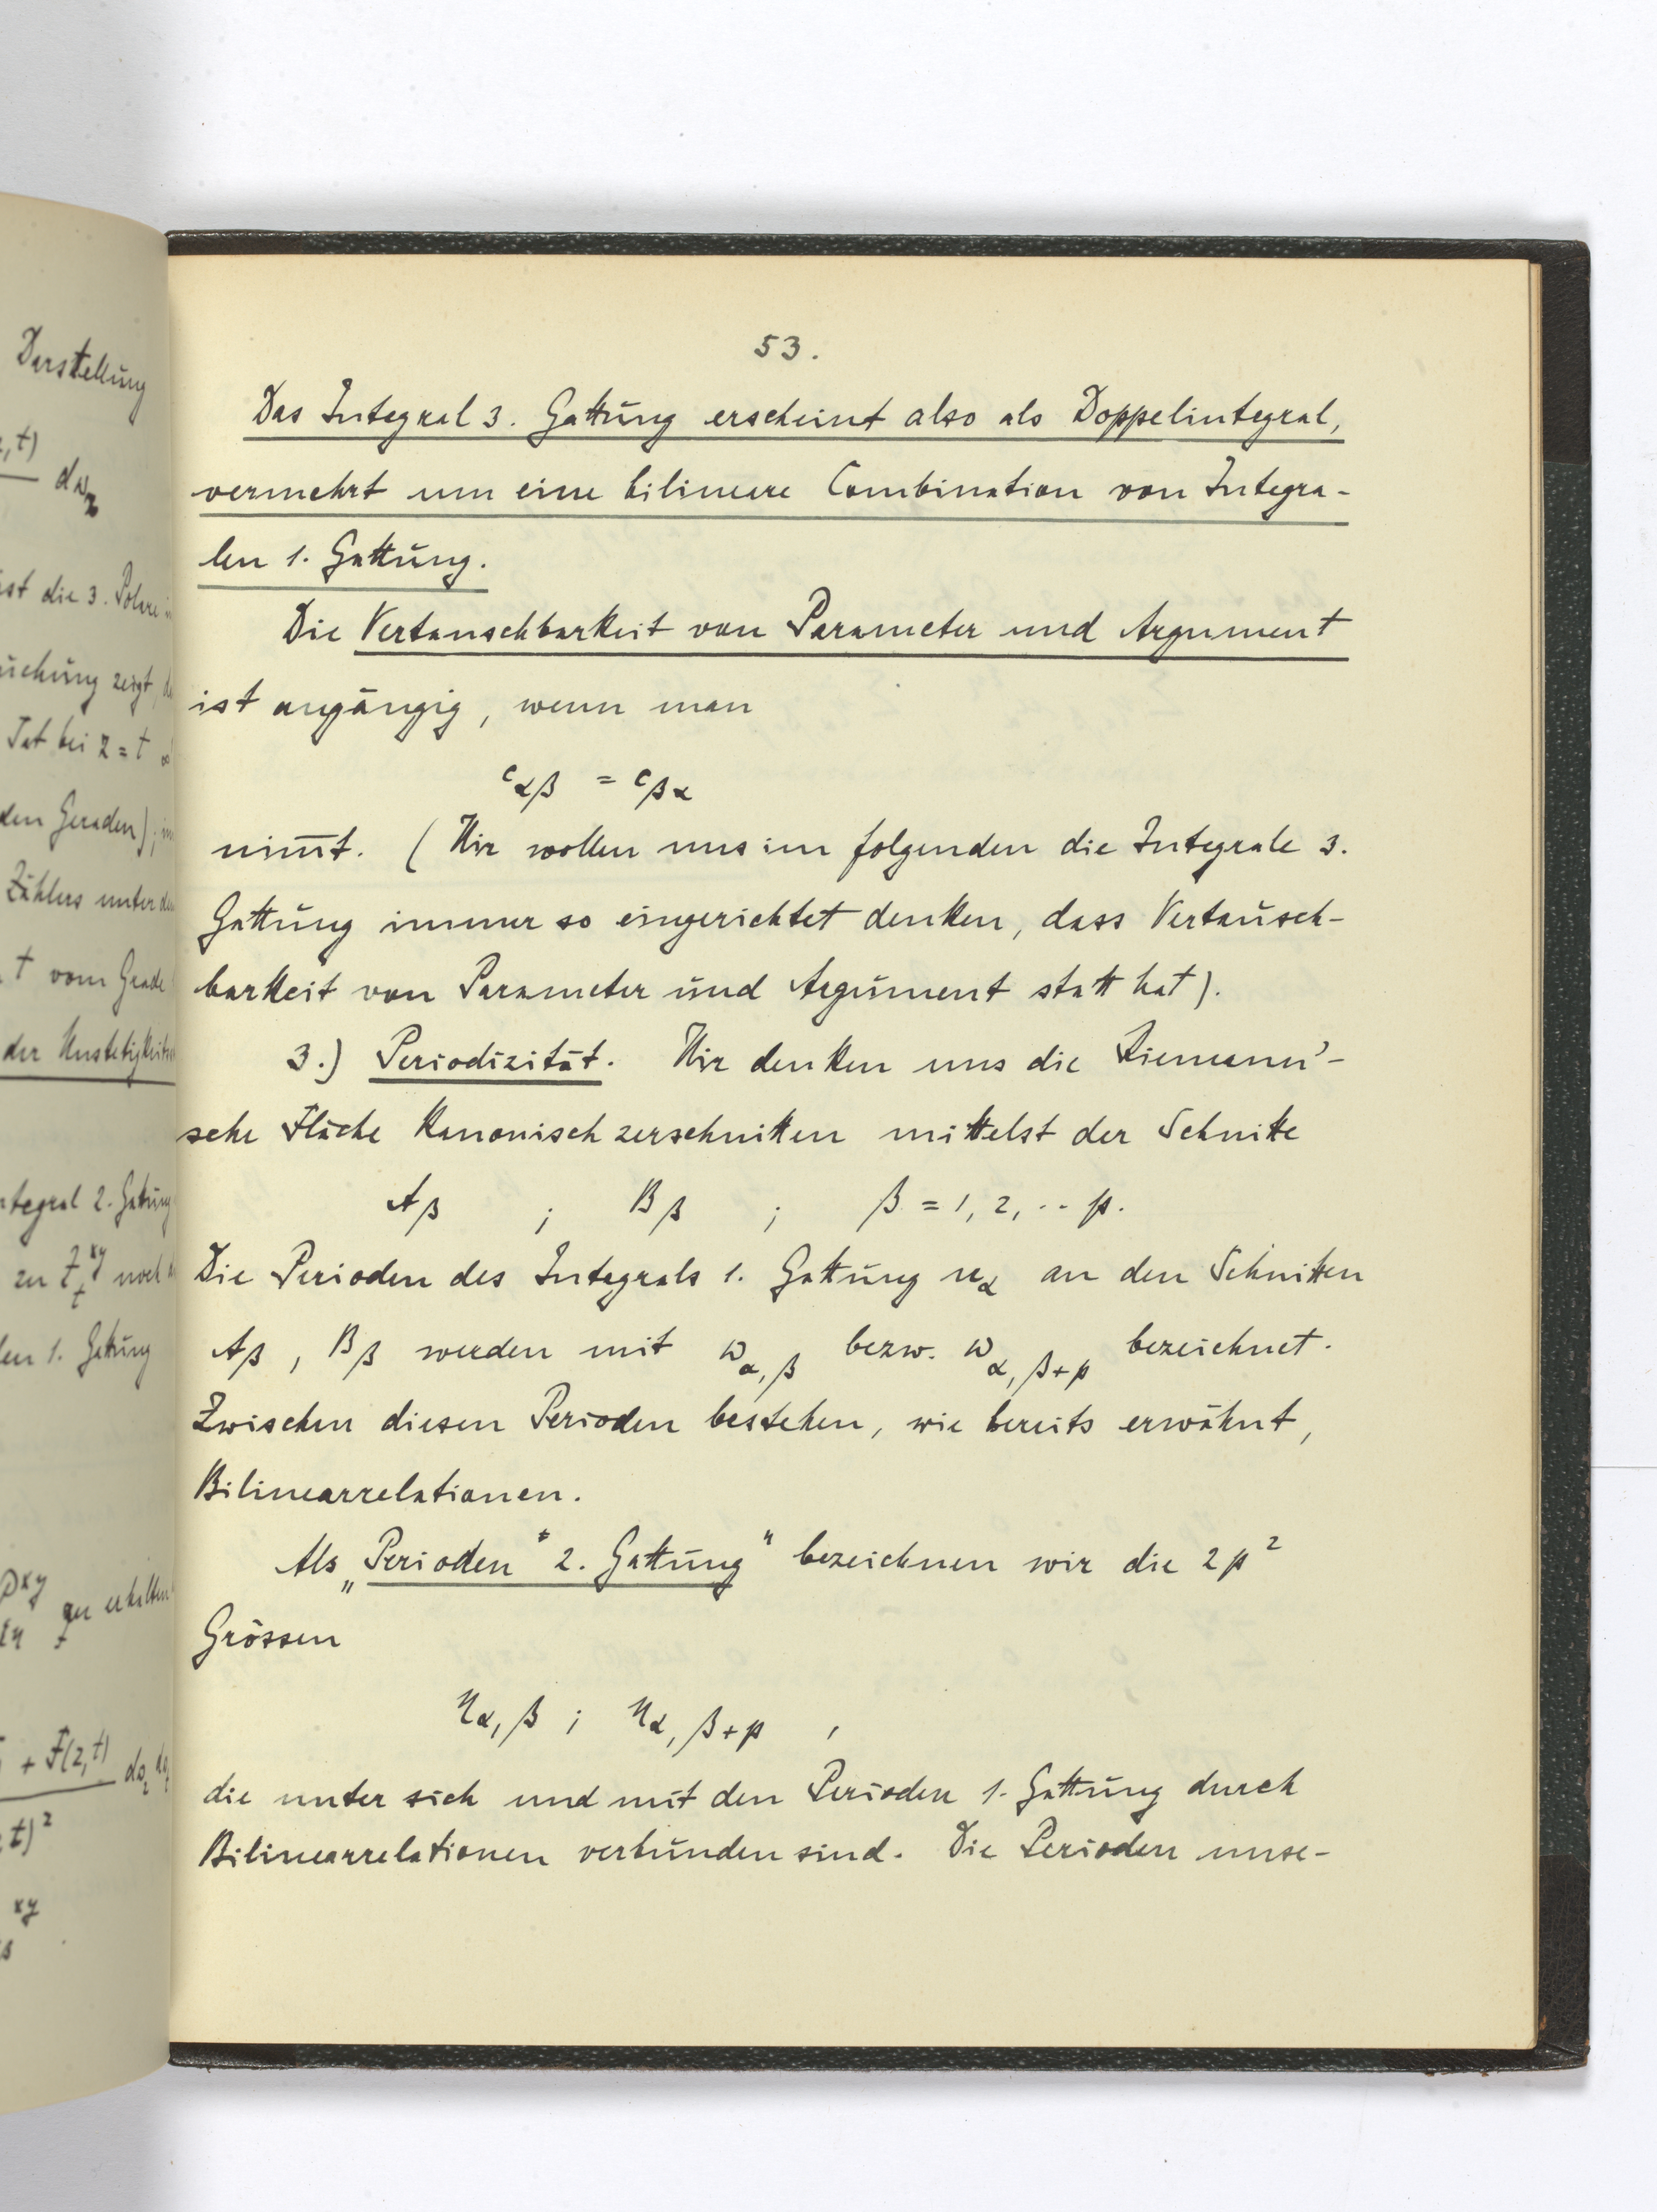 Darstellung
,t)
dω_z
ist die 3. Polare
uchung zeigt,
Tat bei z = t
den Geraden);
Zählers unter
t vom Grade
der Unstetigkeits
ntegral 2. Gattung
zu Z_t^{xy} noch
len 1. Gattung
zu erhalten
+ F(z,t)
t)²
xy
53.
Das Integral 3. Gattung erscheint also als Doppelintegral,
vermehrt um eine bilineare Combination von Integra-
len 1. Gattung.
Die Vertauschbarkeit von Parameter und Argument
ist angängig, wenn man
c_{αβ} = c_{βα}
nim̅t. (Wir wollen uns im folgenden die Integrale 3.
Gattung immer so eingerichtet denken, dass Vertausch-
barkeit von Parameter und Argument statt hat).
3.) Periodizität. Wir denken uns die Riemann'-
sche Fläche kanonisch zerschnitten mittelst der Schnitte
A_β ; B_β ; β = 1, 2, ·· p.
Die Perioden des Integrals 1. Gattung u_α an den Schnitten
A_β , B_β werden mit ω_{α,β} bezw. ω_{α,β+p} bezeichnet.
Zwischen diesen Perioden bestehen, wie bereits erwähnt,
Bilinearrelationen.
Als „Perioden" 2. Gattung" bezeichnen wir die 2p²
Grössen
η_{α,β} ; η_{α,β+p} ,
die unter sich und mit den Perioden 1. Gattung durch
Bilinearrelationen verbunden sind. Die Perioden unse-